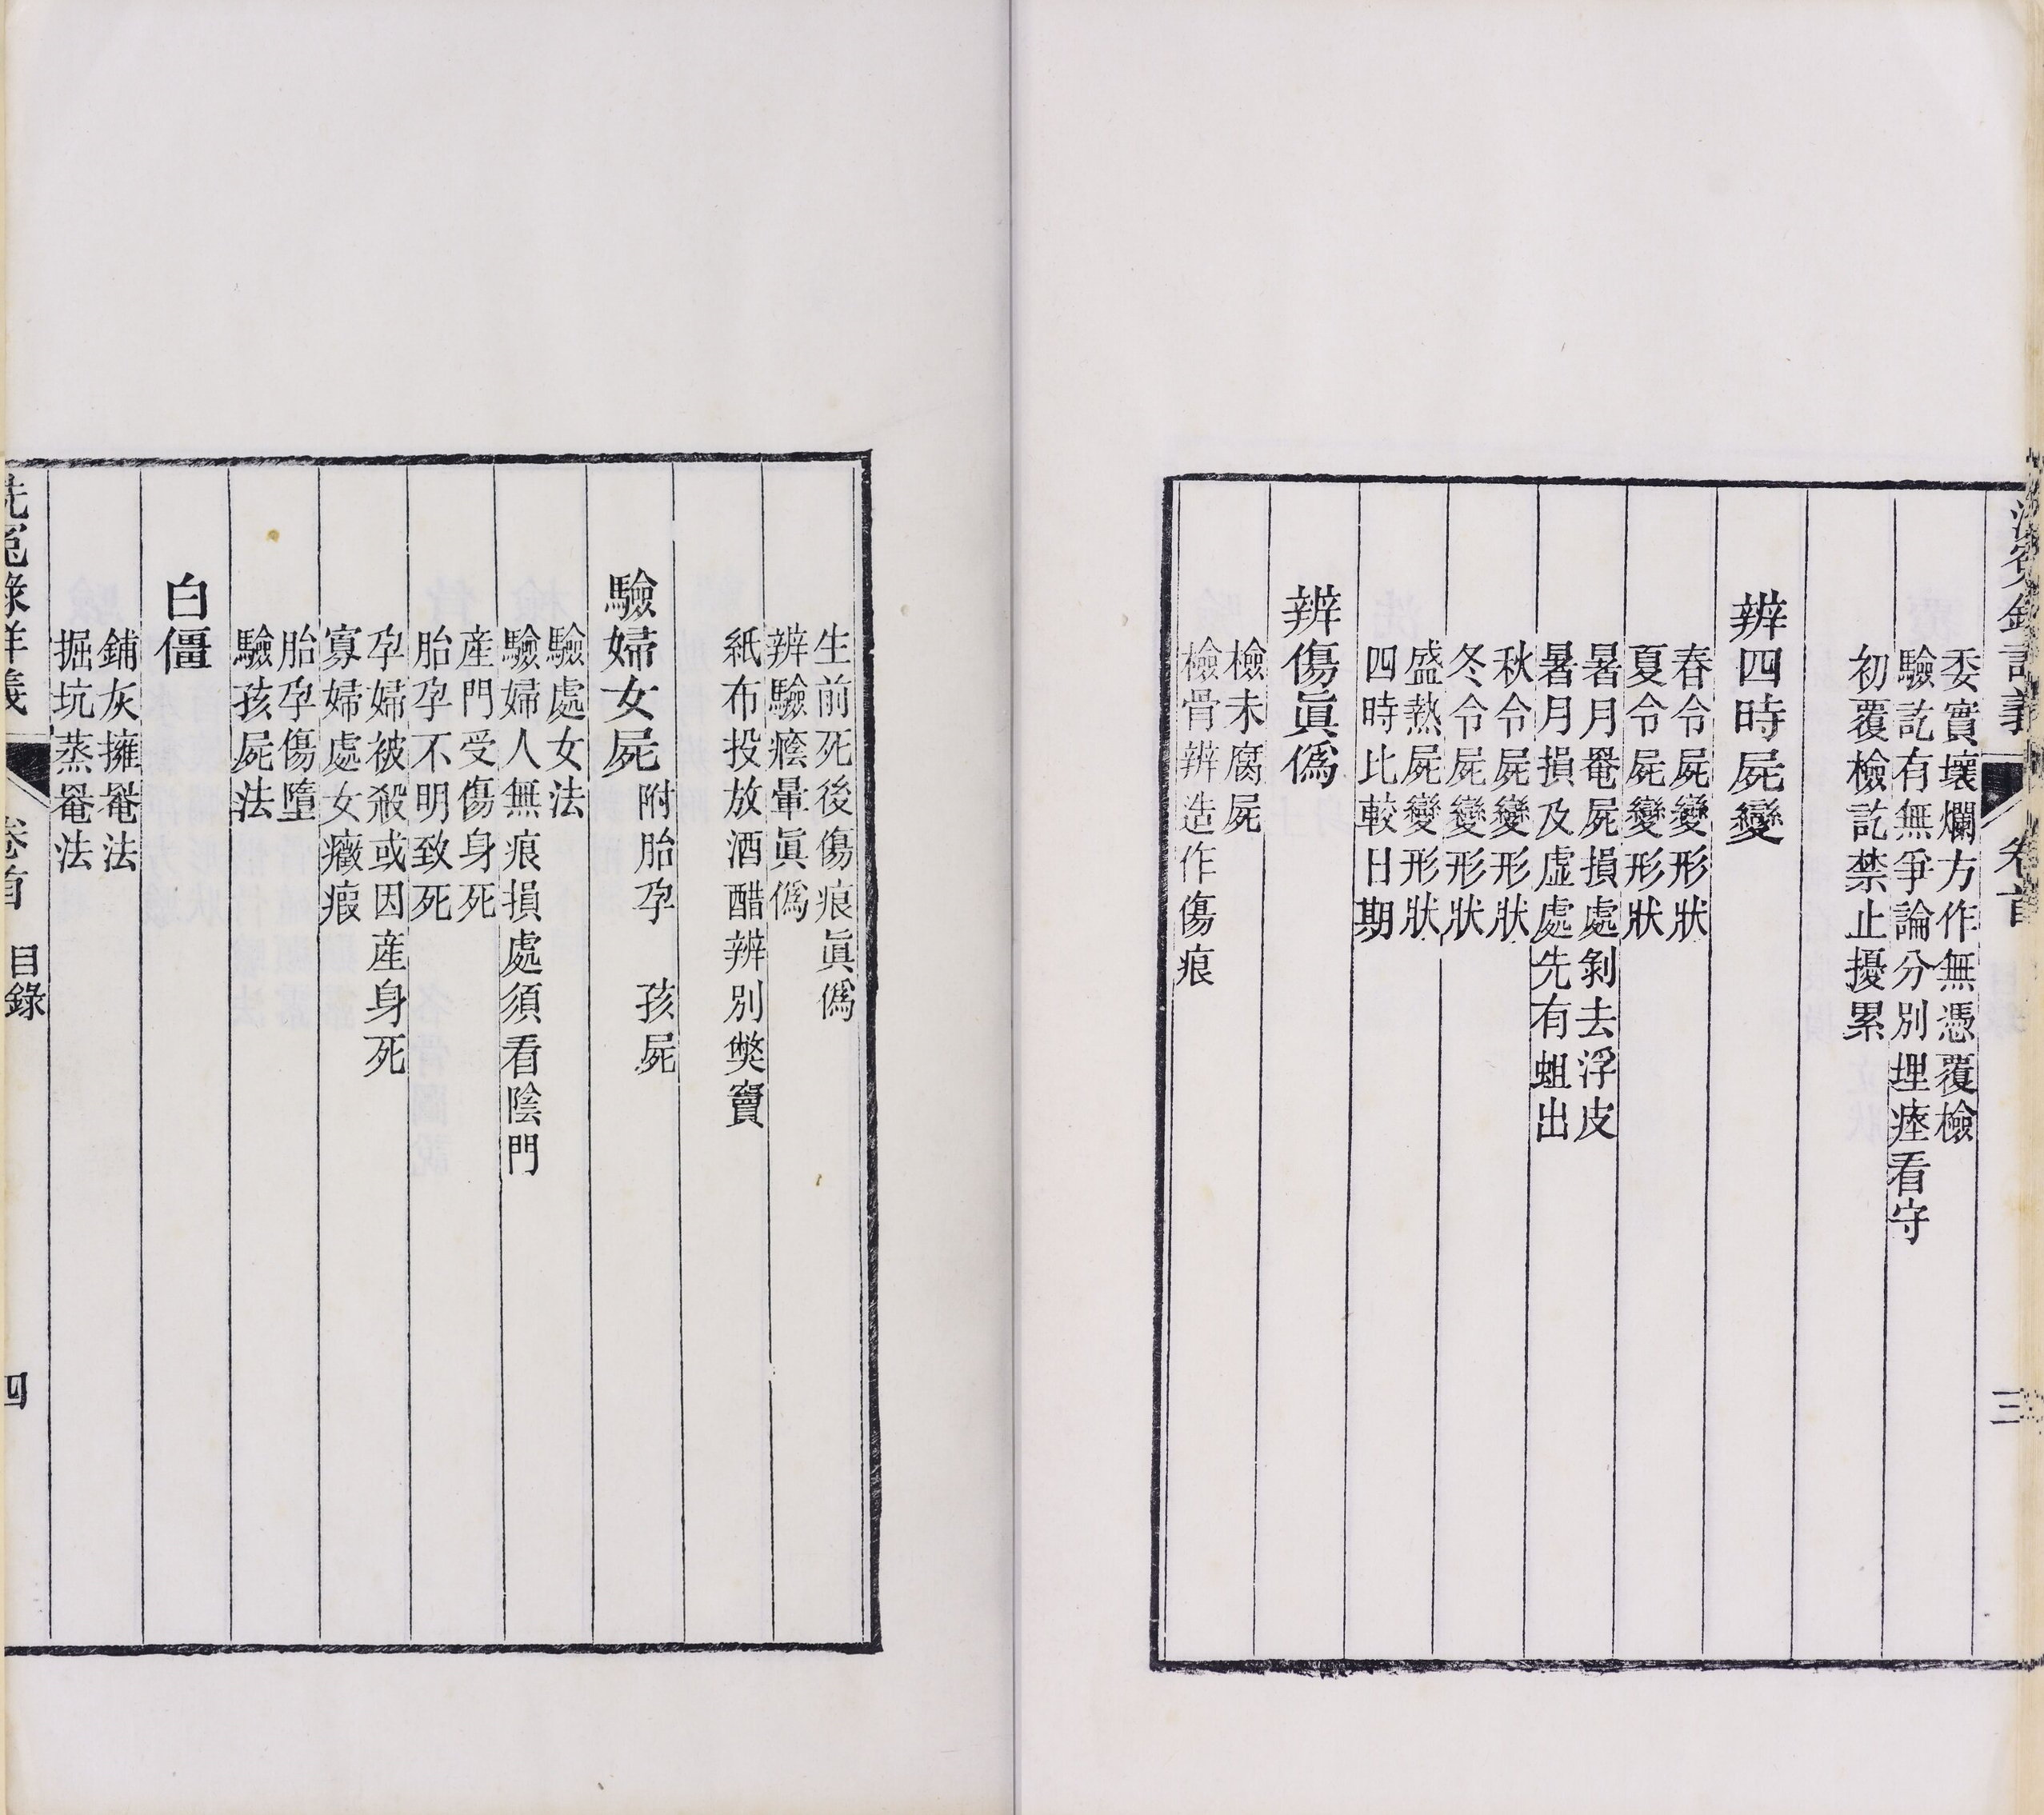 委實壞爛方作無憑覆檢
驗訖有無爭論分別埋瘞看守
初覆檢訖禁止擾累
辨四時屍變
春令屍變形狀
夏令屍變形狀
暑月罨屍損處剝去浮皮
暑月損及虛處先有蛆出
秋令屍變形狀
冬令屍變形狀
盛熱屍變形狀
四時比較日期
辨傷眞僞
檢未腐屍
檢骨辨造作傷痕
卷首
三
生前死後傷痕眞僞
辨驗癊暈眞僞
紙布投放酒醋辨別獘竇
驗婦女屍附胎孕　孩屍
驗處女法
驗婦人無痕損處須看陰門
產門受傷身死
胎孕不明致死
孕婦被殺或因產身死
寡婦處女癥瘕
胎孕傷墮
驗孩屍法
白僵
鋪灰擁罨法
掘坑蒸罨法
洗冤錄詳義
卷首
目錄
四